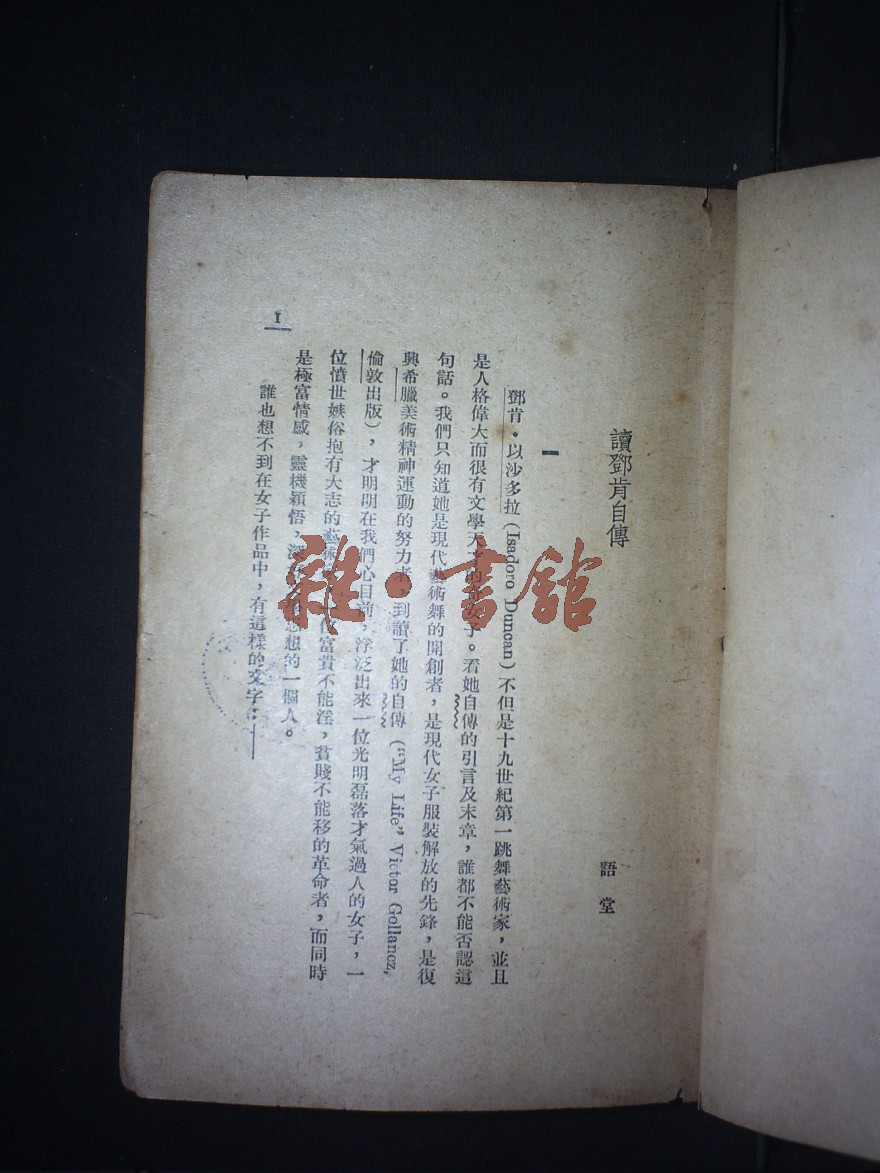 讀鄧肯自傳
語堂
一
鄧肯·以沙多拉(Isadoro Duncan)不但是十九世紀第一跳舞藝術家，並且
是人格偉大而很有文學天才的女子。看她自傳的引言及末章，誰都不能否認這
句話。我們只知道她是現代藝術舞的開創者，是現代女子服裝解放的先鋒，是復
興希臘美術精神運動的努力者，到讀了她的自傳(“My Life” Victor Gollancz,
倫敦出版)，才明明在我們心目前，浮泛出來一位光明磊落才氣過人的女子，一
位憤世嫉俗抱有大志的藝術 富貴不能淫，貧賤不能移的革命者，而同時
是極富情感，靈機穎悟，深 思想的一個人。
誰也想不到在女子作品中，有這樣的文字：——
1
雜·書館